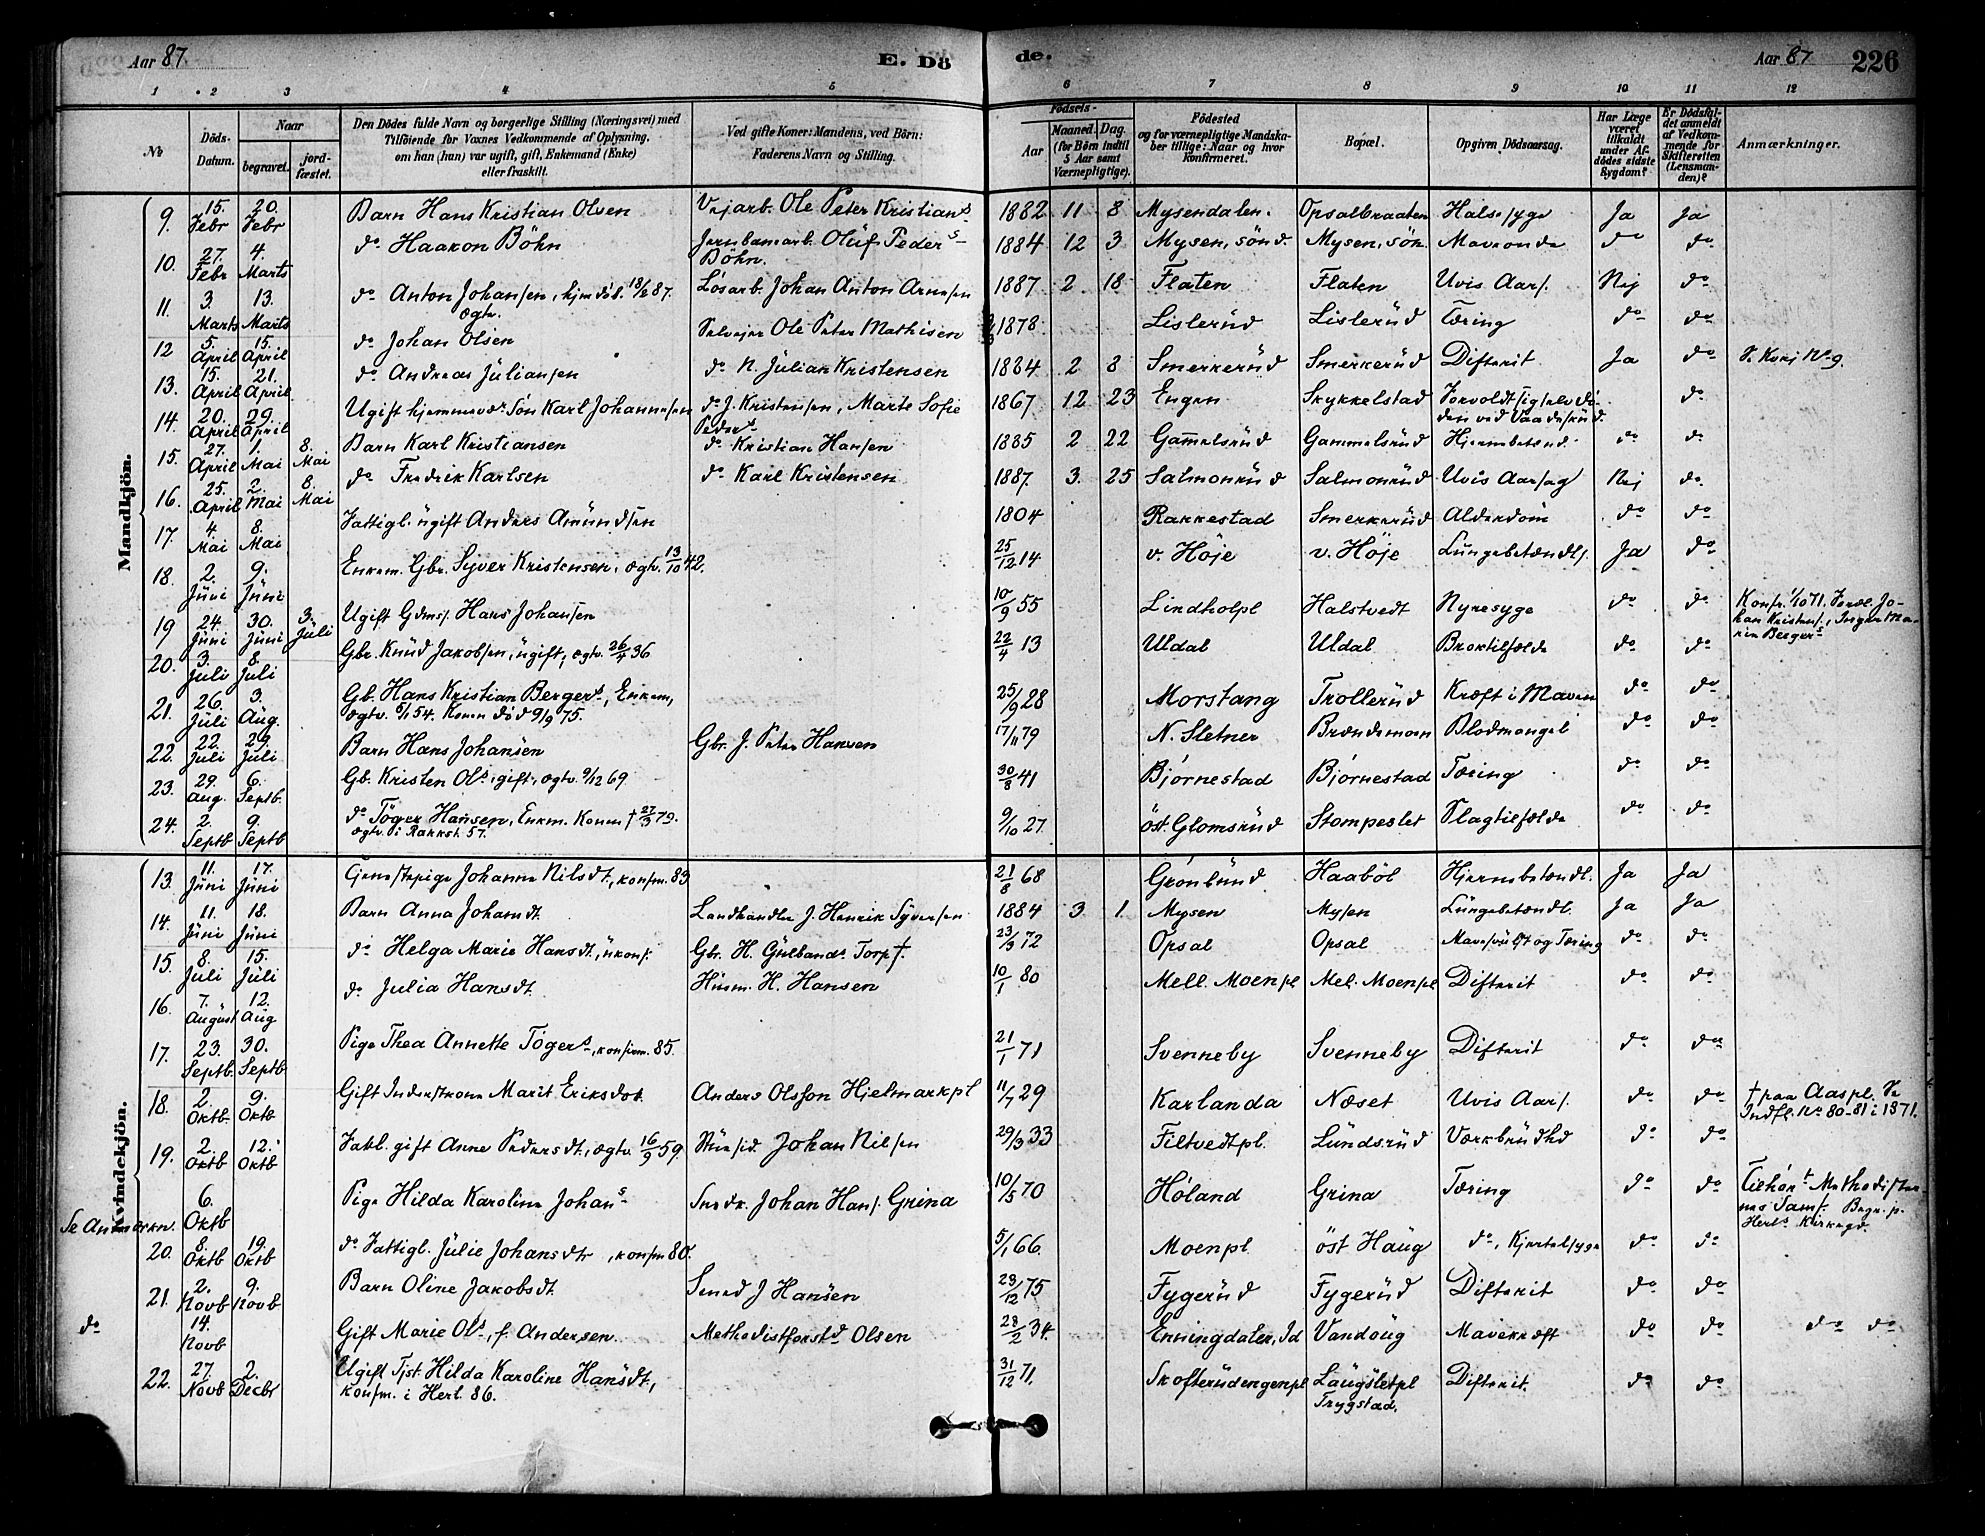 Aar 87
E. Dö
de.
Aar 87
226
1 2 3 4 5 6 7 8 9 10 11 12
No
Döds-
Datum.
Naar
begravet.
jord-
fæstet.
Den Dödes fulde Navn og borgerlige Stilling (Næringsvei) med
Tilföiende for Voxnes Vedkommende af Oplysning,
om han (hun) var ugift, gift, Enkemand (Enke)
eller fraskilt.
Ved gifte Koner: Mandens, ved Börn:
Faderens Navn og Stilling.
Födsels-
Aar
Maaned. Dag.
(for Börn indtil
5 Aar samt
Værnepligtige).
Födested
og for værnepligtige Mandska-
ber tillige: Naar og hvor
konfirmeret.
Bopæl.
Opgiven Dödsaarsag.
Har Læge
været
tilkaldt
under Af-
dödes sidste
Sygdom?
Er Dödsfal-
det anmeldt
af Vedkom-
mende for
Skifteretten
(Lensman-
den)?
Anmærkninger.
Mandkjön.
9. 15. Febr 20. Febr Barn Hans Kristian Olsen Vejarb. Ole Peter Kristians. 1882 11 8 Mysendalen. Opsalbraaten Halssyge Ja Ja
10. 27. Febr 4. Marts do Haakon Böhn Jernbanearb. Oluf Peders. Böhn. 1884 12 3 Mysen, sönd. Mysen, sön. Maveonde do do
11. 3 Marts 13. Marts do Anton Johansen, hjmdöb. 18/2 87. Lösarb. Johan Anton Arnesen 1887 2 18 Flaten Flaten Uvis Aars. Nej do
12 5. April 15. April do Johan Olsen ogtv. Selvejer Ole Peter Mathisen 1878 Lislerud Lislerud Tæring do do
13. 15. April 21. April do Andreas Juliansen do N. Julian Kristensen 1884 2 8 Smerkerud Smerkerud Difterit Ja do S. Kvkj No 9.
14. 20. April 29. April Ugift hjemmevær. Sön Karl Johannesen do J. Kristensen, Marte Sofie Peders. 1867 12 23 Engen Skykkelstad Forvoldt sig selv Dö-
den ved Vaadeskud. do
15. 27. April 1. Mai 8. Mai Barn Karl Kristiansen do Kristian Hansen 1885 2 22 Gammelsrud Gammelsrud Hjernebetænd. do do
16. 25. April 2. Mai 8. Mai do Fredrik Karlsen do Karl Kristensen 1887. 3. 25 Salmonrud Salmonrud Uvis Aarsag Nej do
17. 4. Mai 8. Mai Fattigl. ugift Anders Amundsen 1804 Rakkestad Smerkerud Alderdom do do
18. 2. Juni 9. Juni Enkem. Gbr. Syver Kristensen, ogtv. 13/10 42. 25/12 14 v. Höje v. Höje Lungebetændls. Ja do
19 24. Juni 30. Juni 3. Juli Ugift Gdms. Hans Johansen 10/9 55 Lindholpl Halstvedt Nyresyge do do Konfr. 1/10 71. Foræl. Jo-
han Kristens., Inger Ma-
rie Bergers.
20. 3. Juli 8. Juli Gbr. Knud Jakobsen, ugift, ogtv. 26/4 36 22/4 13 Uldal Uldal Broktilfælde do do
21. 26. Juli 3. Aug. Gb. Hans Kristian Bergers., Enkem,
ogtv. 6/1 54. Konen död 9/9 75. 25/9 28 Morstang Trollerud Kræft i Maven do do
22. 22. Juli 29. Juli Barn Hans Johansen Gbr. J. Peter Hansen 17/11 79 N. Sletner Brændemoen Blodmangel do do
23. 29. Aug. 6. Septb. Gb. Kristen Ols. gift, ogtv. 9/12 69 30/8 41 Björnestad Björnestad Tæring do do
24. 2. Septb 9. Septb do Töger Hansen, Enkm. Konen † 27/3 79.
ogtv. i Rakkst. 57. 9/10 27. öst. Glomsrud Stompeslet Slagtilfælde do do
Kvindekjön.
13. 11. Juni 17. Juni Tjenestepige Johanne Nilsdt., konfm. 83 21/8 68 Grönlund Haaböl Hjernebetændl. Ja Ja
14. 11. Juni 18. Juni Barn Anna Johansdt. Landhandler J. Henrik Syversen 1884 3 1. Mysen Mysen Lungebetændl. Ja Ja
15. 8. Juli 15. Juli do Helga Marie Hansdt., ukonf. Gbr. H. Gulbands. Torp †. 23/3 72 Opsal Opsal Mavesvulst og Tæring do do
16. 7. August 12. Aug do Julia Hansdt. Husm. H. Hansen 10/1 80 Mell. Moenpl Mel. Moenpl Difterit do do
17. 23. Septb. 30. Septb Pige Thea Annette Tögers., konfirm. 85. 21/1 71 Svenneby Svenneby Difterit do do
18. 2. Oktb. 9. Oktb Gift Inderstkone Marit Eriksdot. Anders Olsson Hjelmarkpl 11/7 29 Karlanda Næset Uvis Aars. do do † paa Aaspl. Se
Indfl. No 80-81 i 1871.
19. 2. Oktb 12. Oktb Fatl. gift Anne Pedersdt., ogtv. 16/9 59. Johan Nilsen 29/3 33 Filtvedtpl. Lundsrud Værkbrudhd do do
Se Anmærkn. 6. Oktb Pige Hilda Karoline Johans. Snedk. Johan Hans. Grina 10/5 70 Höland Grina Tæring do do Tilhört Methodister-
nes Samf. Begr. p.
Herl. Kirkegd.
20. 8. Oktb 19. Oktb do Fattigl. Julie Johansdtr, konfm 80. 5/1 66. Moenpl. öst Haug do, Kjertelsyge do do
21. 2. Novb 9. Novb Barn Oline Jakobsdt. Smed J Hansen 23/12 75 Fygerud Fygerud Difterit do do
do 14. Novb Gift Marie Ols., f. Andersen. Methodistforstd Olsen 28/2 34. Enningdalen, Id Vandöug Mavekræft do do do do
22. 27. Novb 2. Decbr Ugift Tjst. Hilda Karoline Hansdt,
konfm. i Herl. 86. 31/12 71. Skofterudengenpl Laugsletpl
Trygstad. Difterit. do do